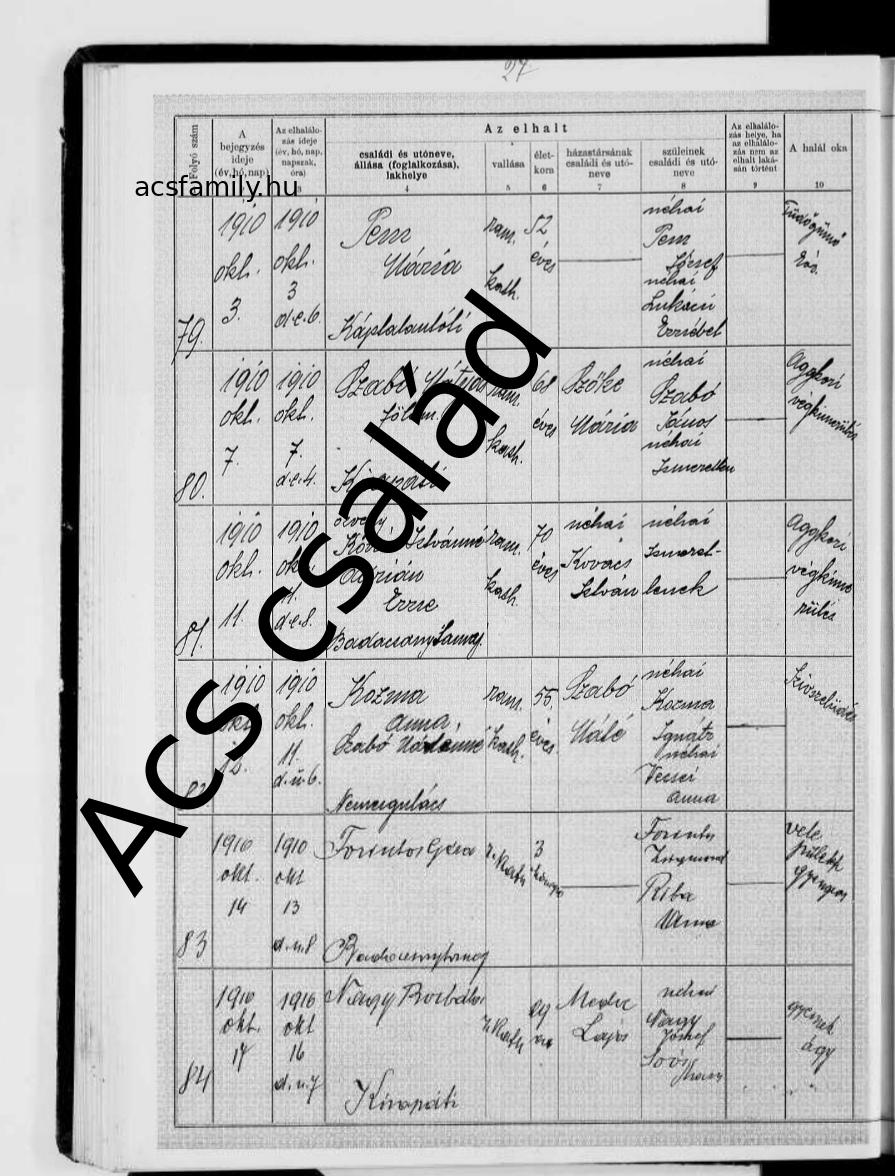 27.
Az elhalt
Folyó szám
A bejegyzés ideje (év, hó, nap)
Az elhalálozás ideje (év, hó, nap, napszak, óra)
családi és utóneve, állása (foglalkozása), lakhelye
vallása
életkora
házastársának családi és utóneve
szüleinek családi és utóneve
Az elhalálozás helye, ha az elhalálozás nem az elhalt lakásán történt
A halál oka
acsfamily.hu
3 4 5 6 7 8 9 10
79.
1910 okt. 3.
1910 okt. 3 d.e. 6.
Pem Mária
Káptalantóti
rom. kath.
52 éves
néhai Pem József
néhai Lukácsi Erzsébet
Tüdőgümő
80.
1910 okt. 7.
1910 okt. 7. d.e. 4.
Szabó
rom. kath.
68 éves
Szőke Mária
néhai Szabó János
néhai Ismeretlen
Aggkori végkimerülés
81.
1910 okt. 11.
1910 okt. 11. d.e. 8.
özvegy
Istvánné
Adrián Erzse
Badacsonytomaj
rom. kath.
70 éves
néhai Kovács István
néhai Ismeretlenek
Aggkori végkimerülés
1910 okt. 12.
1910 okt. 11. d.u. 6.
Kozma Anna
Szabó Máténé
Nemesgulács
rom. kath.
55 éves
Szabó Máté
néhai Kozma Ignátz
néhai Anna
Szívszélhüdés
83
1910 okt. 14
1910 okt 13 d.u. 8
Forintos Géza
Badacsonytomaj
r. kath
3
Forintos Zsigmond
Riba Anna
vele született gyengeség
84
1910 okt. 17
1910 okt 16 d.u. 7
Nagy Borbála
Kisapáti
r. kath
29
Medve Lajos
néhai Nagy József
Soós
gyermek ágy
Acs család